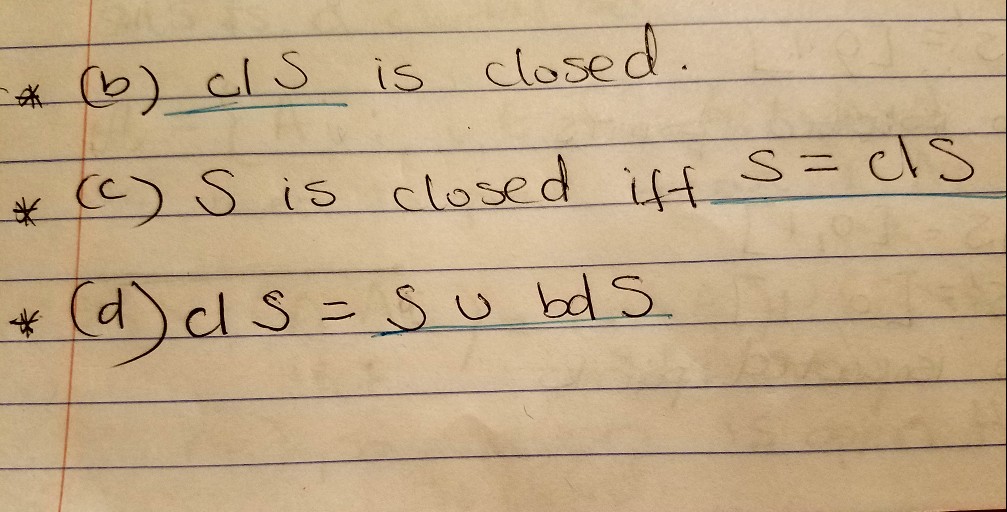 * (b) cl S is closed.
* (c) S is closed iff S = cl S
* (d) cl S = S ∪ bd S